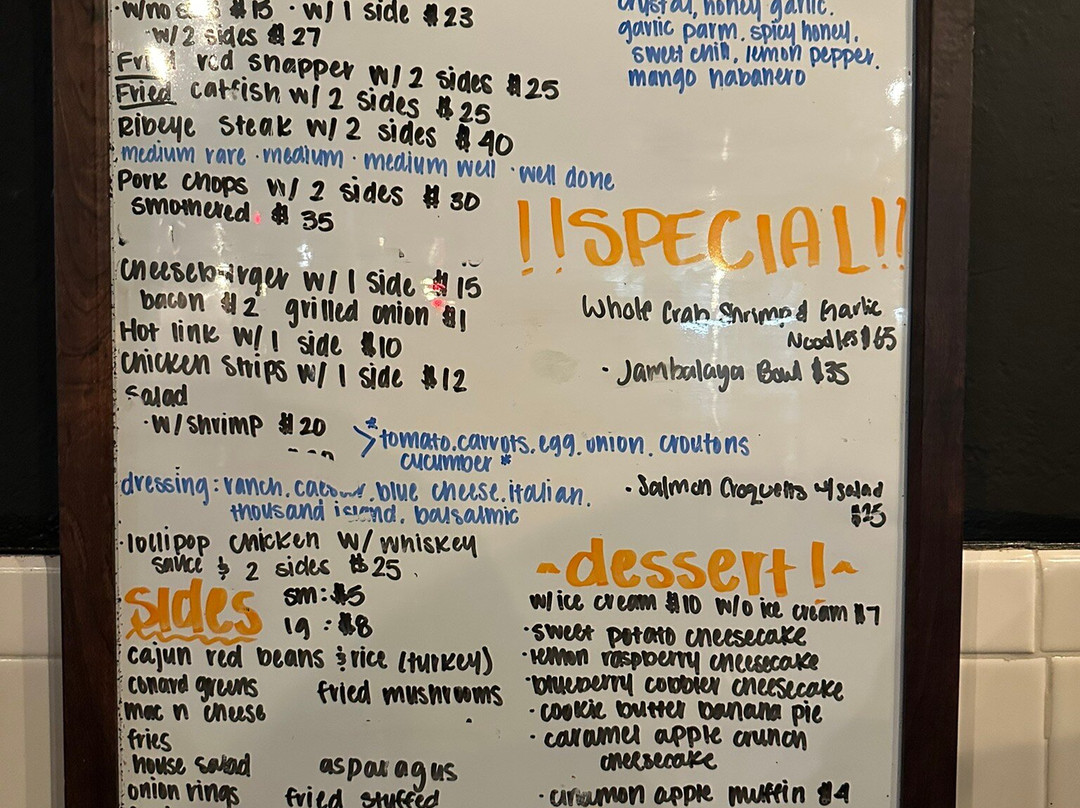 w/no s $15 · w/ 1 side $23
w/2 sides $27
Fried red snapper w/ 2 sides $25
Fried catfish w/ 2 sides $25
Ribeye steak w/ 2 sides $40
medium rare · medium · medium well · well done
Pork chops w/ 2 sides $30
smothered $35
cheeseburger w/ 1 side $15
bacon $2 grilled onion $1
Hot link w/ 1 side $10
chicken strips w/ 1 side $12
salad
· w/shrimp $20
>*tomato.carrots.egg.onion.croutons
cucumber*
dressing: ranch.caesar.blue cheese.italian.
thousand island. balsalmic
· lollipop chicken w/ whiskey
sauce & 2 sides $25
sides
sm: $5
lg : $8
cajun red beans & rice (turkey)
conard greens
fried mushrooms
mac n cheese
fries
house salad
asparagus
onion rings
fried stuffed
crystal, honey garlic.
garlic parm. spicy honey.
sweet chili. lemon pepper.
mango habanero
!!SPECIAL!!
Whole Crab Shrimp & Garlic
Noodles $65
· Jambalaya Bowl $35
· Salmon Croquetts w/ salad
$25
~dessert!~
w/ice cream $10 w/o ice cream $7
· sweet potato cheesecake
· lemon raspberry cheesecake
· blueberry cobbler cheesecake
· cookie butter banana pie
· caramel apple crunch
cheesecake
· cinnamon apple muffin $4